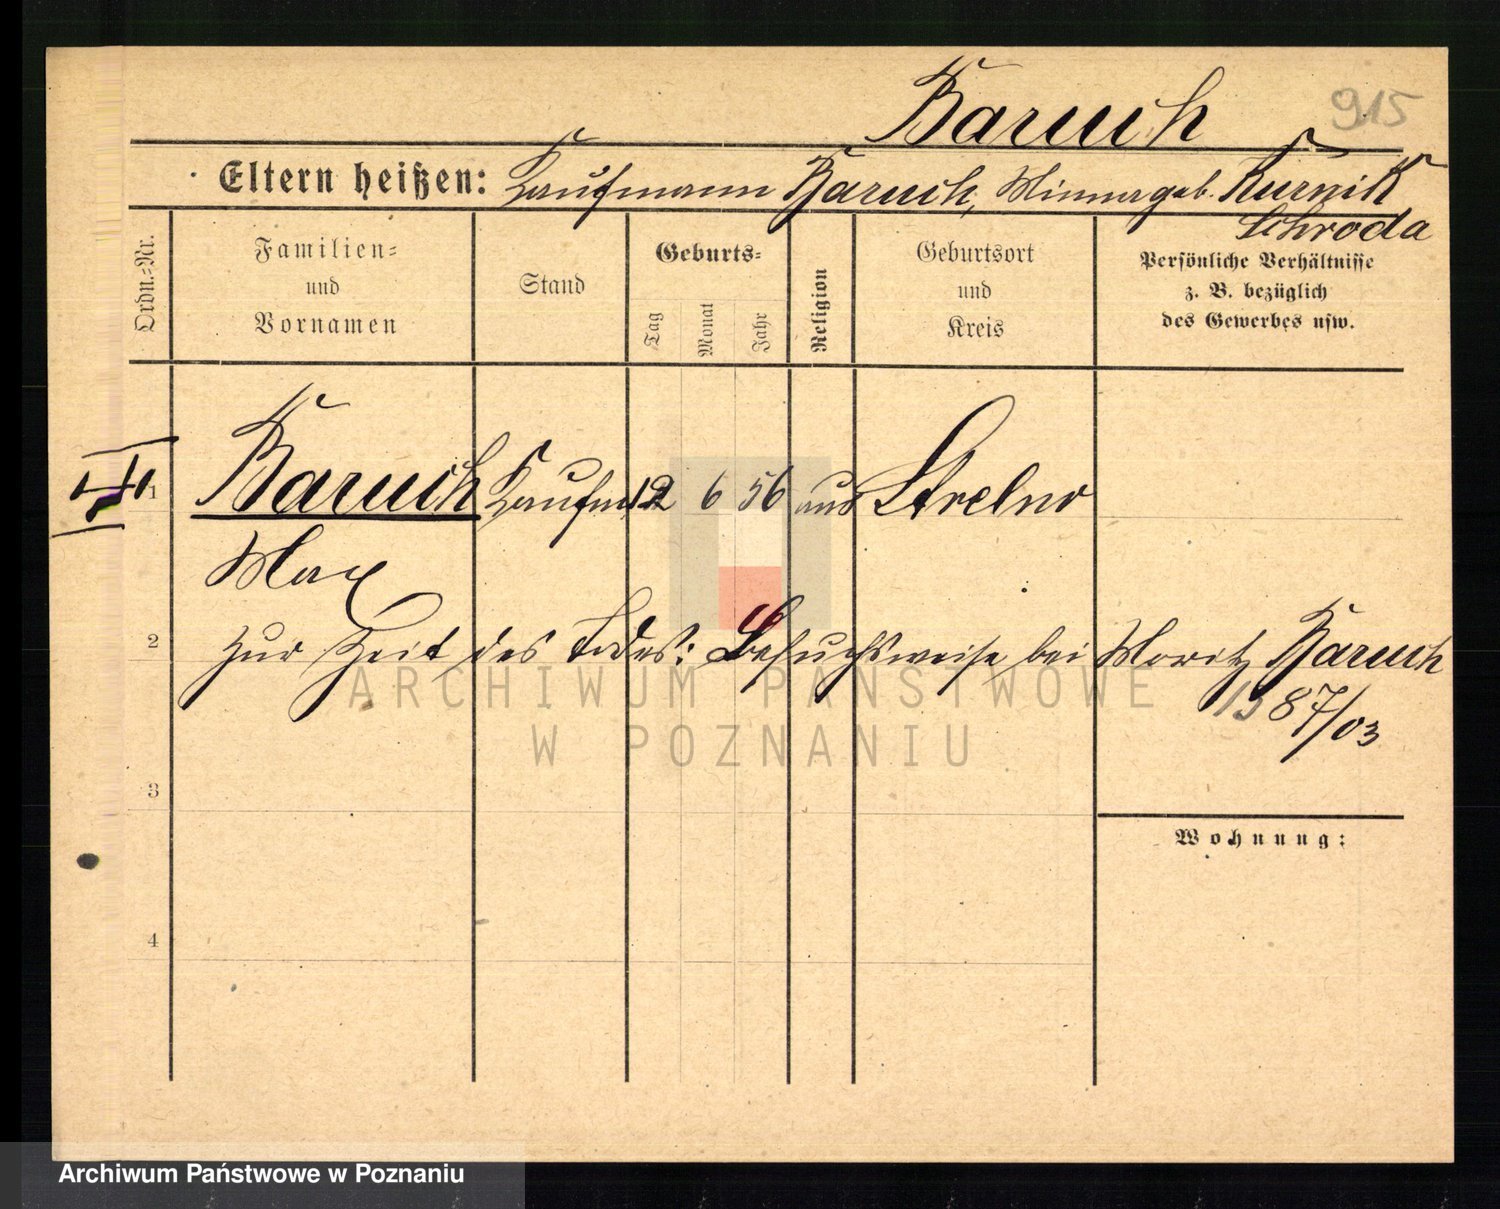 Baruch 915
Eltern heißen: Kaufmann Baruch, Minna geb. Kurnik
Schroda
Ordn.-Nr.
Familien-
und
Vornamen
Stand
Geburts-
Tag
Monat
Jahr
Religion
Geburtsort
und
Kreis
Persönliche Verhältnisse
z. B. bezüglich
des Gewerbes usw.
1 Baruch Kaufm. 12 6 56 aus Strelno
Max
2 zur Zeit des Todes: Besuchsweise bei Moritz Baruch
1387/03
3
Wohnung:
4
ARCHIWUM PAŃSTWOWE
W POZNANIU
Archiwum Państwowe w Poznaniu